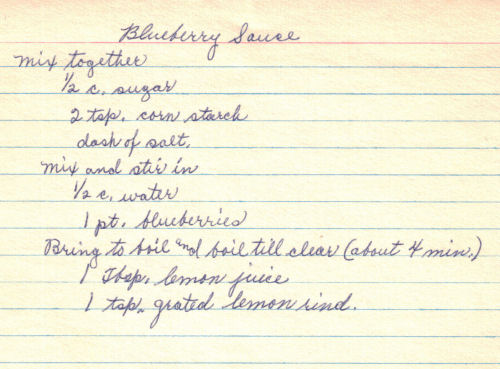 Blueberry Sauce
Mix together
1/2 c. sugar
2 tsp. corn starch
dash of salt.
Mix and stir in
1/2 c. water
1 pt. blueberries
Bring to boil and boil till clear (about 4 min.)
1 Tbsp. lemon juice
1 tsp. grated lemon rind.